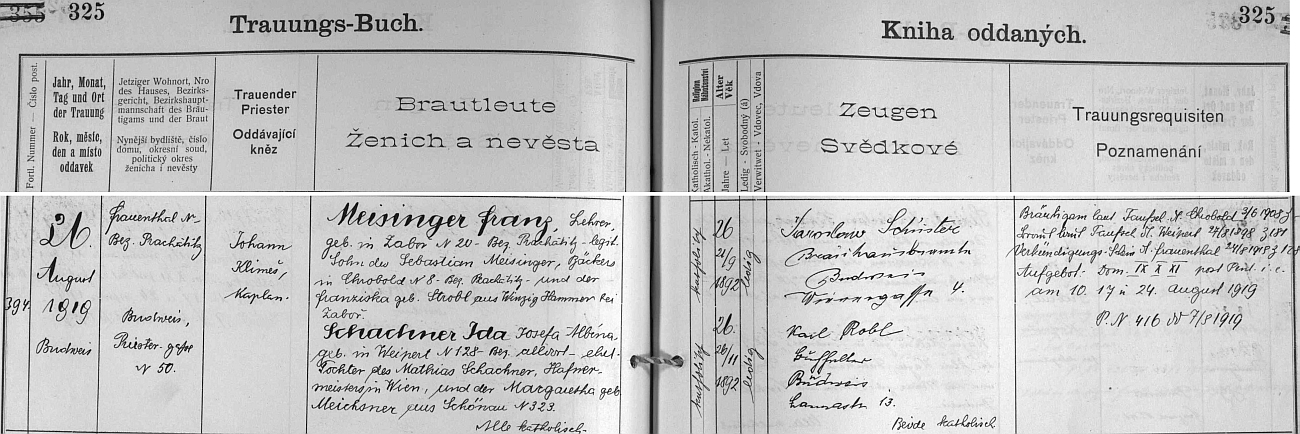 355 325
Trauungs-Buch.
Fortl. Nummer — Číslo post.
Jahr, Monat,
Tag und Ort
der Trauung
Rok, měsíc,
den a místo
oddavek
Jetziger Wohnort, Nro
des Hauses, Bezirks-
gericht, Bezirkshaupt-
mannschaft des Bräu-
tigams und der Braut
Nynější bydliště, číslo
domu, okresní soud,
politický okres
ženicha i nevěsty
Trauender
Priester
Oddávající
kněz
Brautleute
Ženich a nevěsta
394.
26.
August
1919
Budweis
Frauenthal N-
Bez. Prachatitz
Budweis,
Priester-gasse
N 50.
Johann
Klimeš,
Kaplan.
Meisinger Franz, Lehrer,
geb. in Žabor N 20- Bez. Prachatitz- legit.
Sohn des Sebastian Meisinger, Bäckers
in Chrobold N 8- Bez. Prachatitz- und der
Franziska geb. Strobl aus Winzig Hammer bei
Žabor.
Schachner Ida Josefa Albina,
geb. in Weipert N 128- Bez. allvort- ehel.
Tochter des Mathias Schachner, Hafner-
meisters in Wien, und der Margaretha geb.
Meichsner aus Schönau N 323.
Alle katholisch-
325
Kniha oddaných.
Religion
Náboženství
Katholisch - Katol.
Akathol. - Nekatol.
Alter
Věk
Jahre — Let
Ledig - Svobodný (á)
Verwitwet - Vdovec, Vdova
Zeugen
Svědkové
Trauungsrequisiten
Poznamenání
katholisch
26
21/9
1892
ledig
Jaroslaw Schuster
Bräuhausbeamte
Budweis
Wienergasse 4.
katholisch
26.
26/11
1892
ledig
Karl Robl
Budweis
Lannastr 13.
Beide katholisch
Bräutigam laut Taufsch. A. Chrobold
Braut laut Taufsch. A. Weipert 27/8 1898 Z 181
Verkündigungs-Schein A. Frauenthal 24/8 1918
Aufgebot: Dom. IX X XI post Pent. i. e.
am 10. 17 u 24. August 1919
P. N 416 dd 7/8 1919